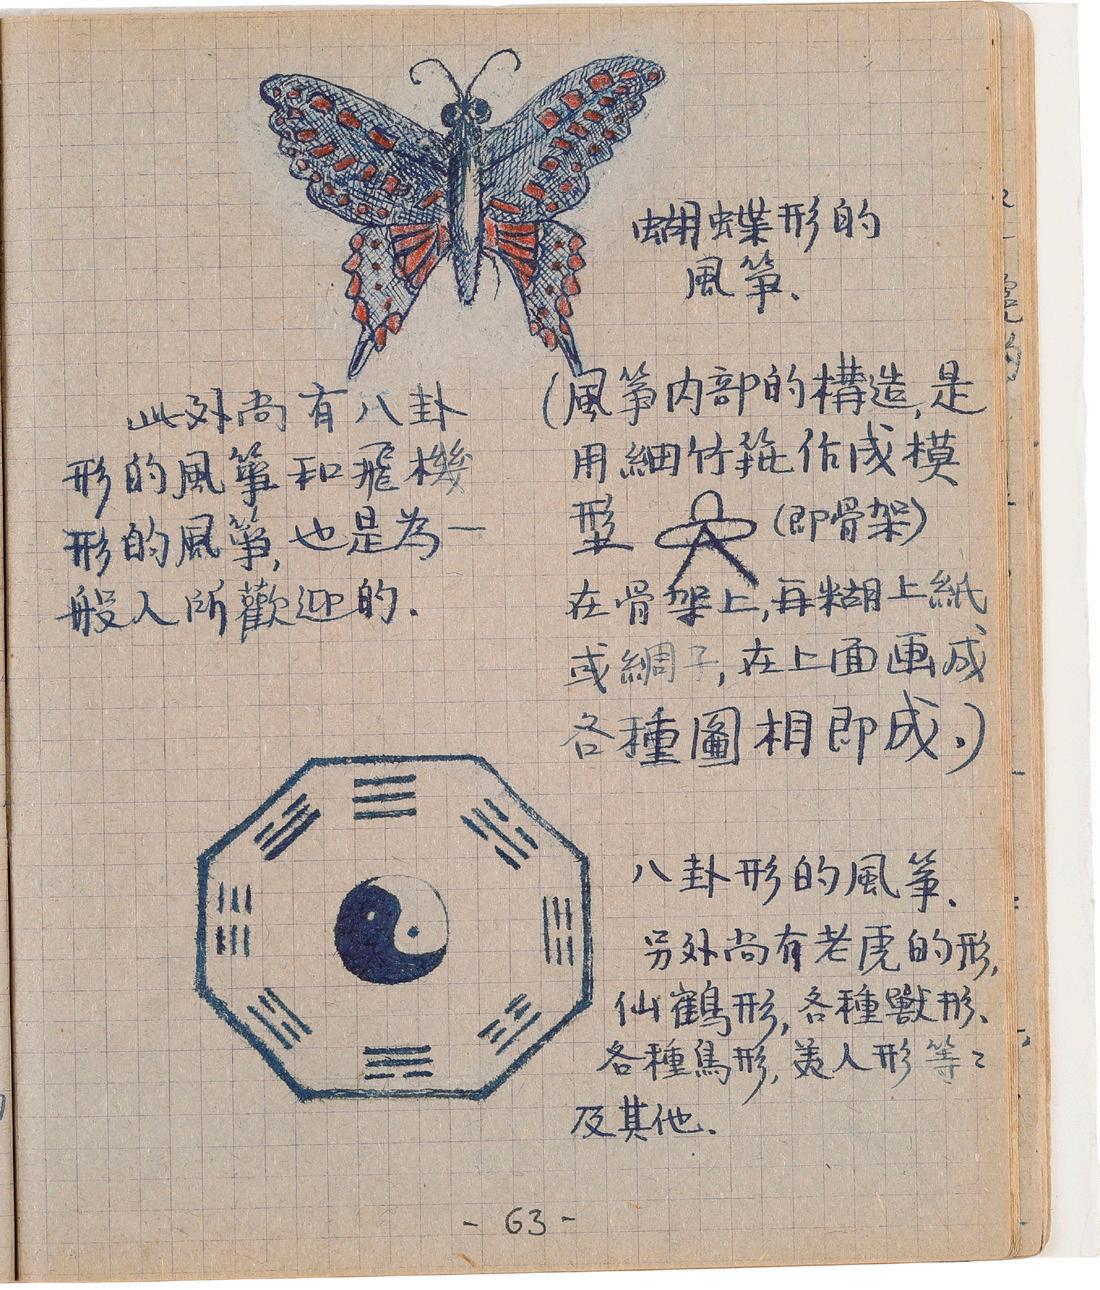 蝴蝶形的
風箏、
此外尚有八卦
形的風箏和飛機
形的風箏,也是為一
般人所歡迎的.
(風箏内部的構造,是
用細竹 作成模
型 (即骨架)
在骨架上,再糊上紙
或綢子,在上面画成
各種圖相即成。)
八卦形的風箏、
另外尚有老虎的形,
仙鶴形,各種獸形、
各種鳥形,美人形等々
及其他.
- 63 -